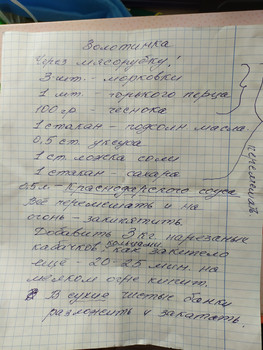 Золотинка
Через мясорубку!
3 шт. - морковки
1 шт. - горького перца
100 гр. - чеснока
1 стакан - подсолн масла
0,5 ст. уксуса
1 ст. ложка соли
1 стакан - сахара
0,5 л - Краснодарского соуса
Всё перемешать и на
огонь - закипятить.
Добавить 3 кг. нарезаных
кабачков как закипело
ещё 20-25 мин. на
мелком огне кипит.
В сухие чистые банки
разложить и закатать.
перемешать